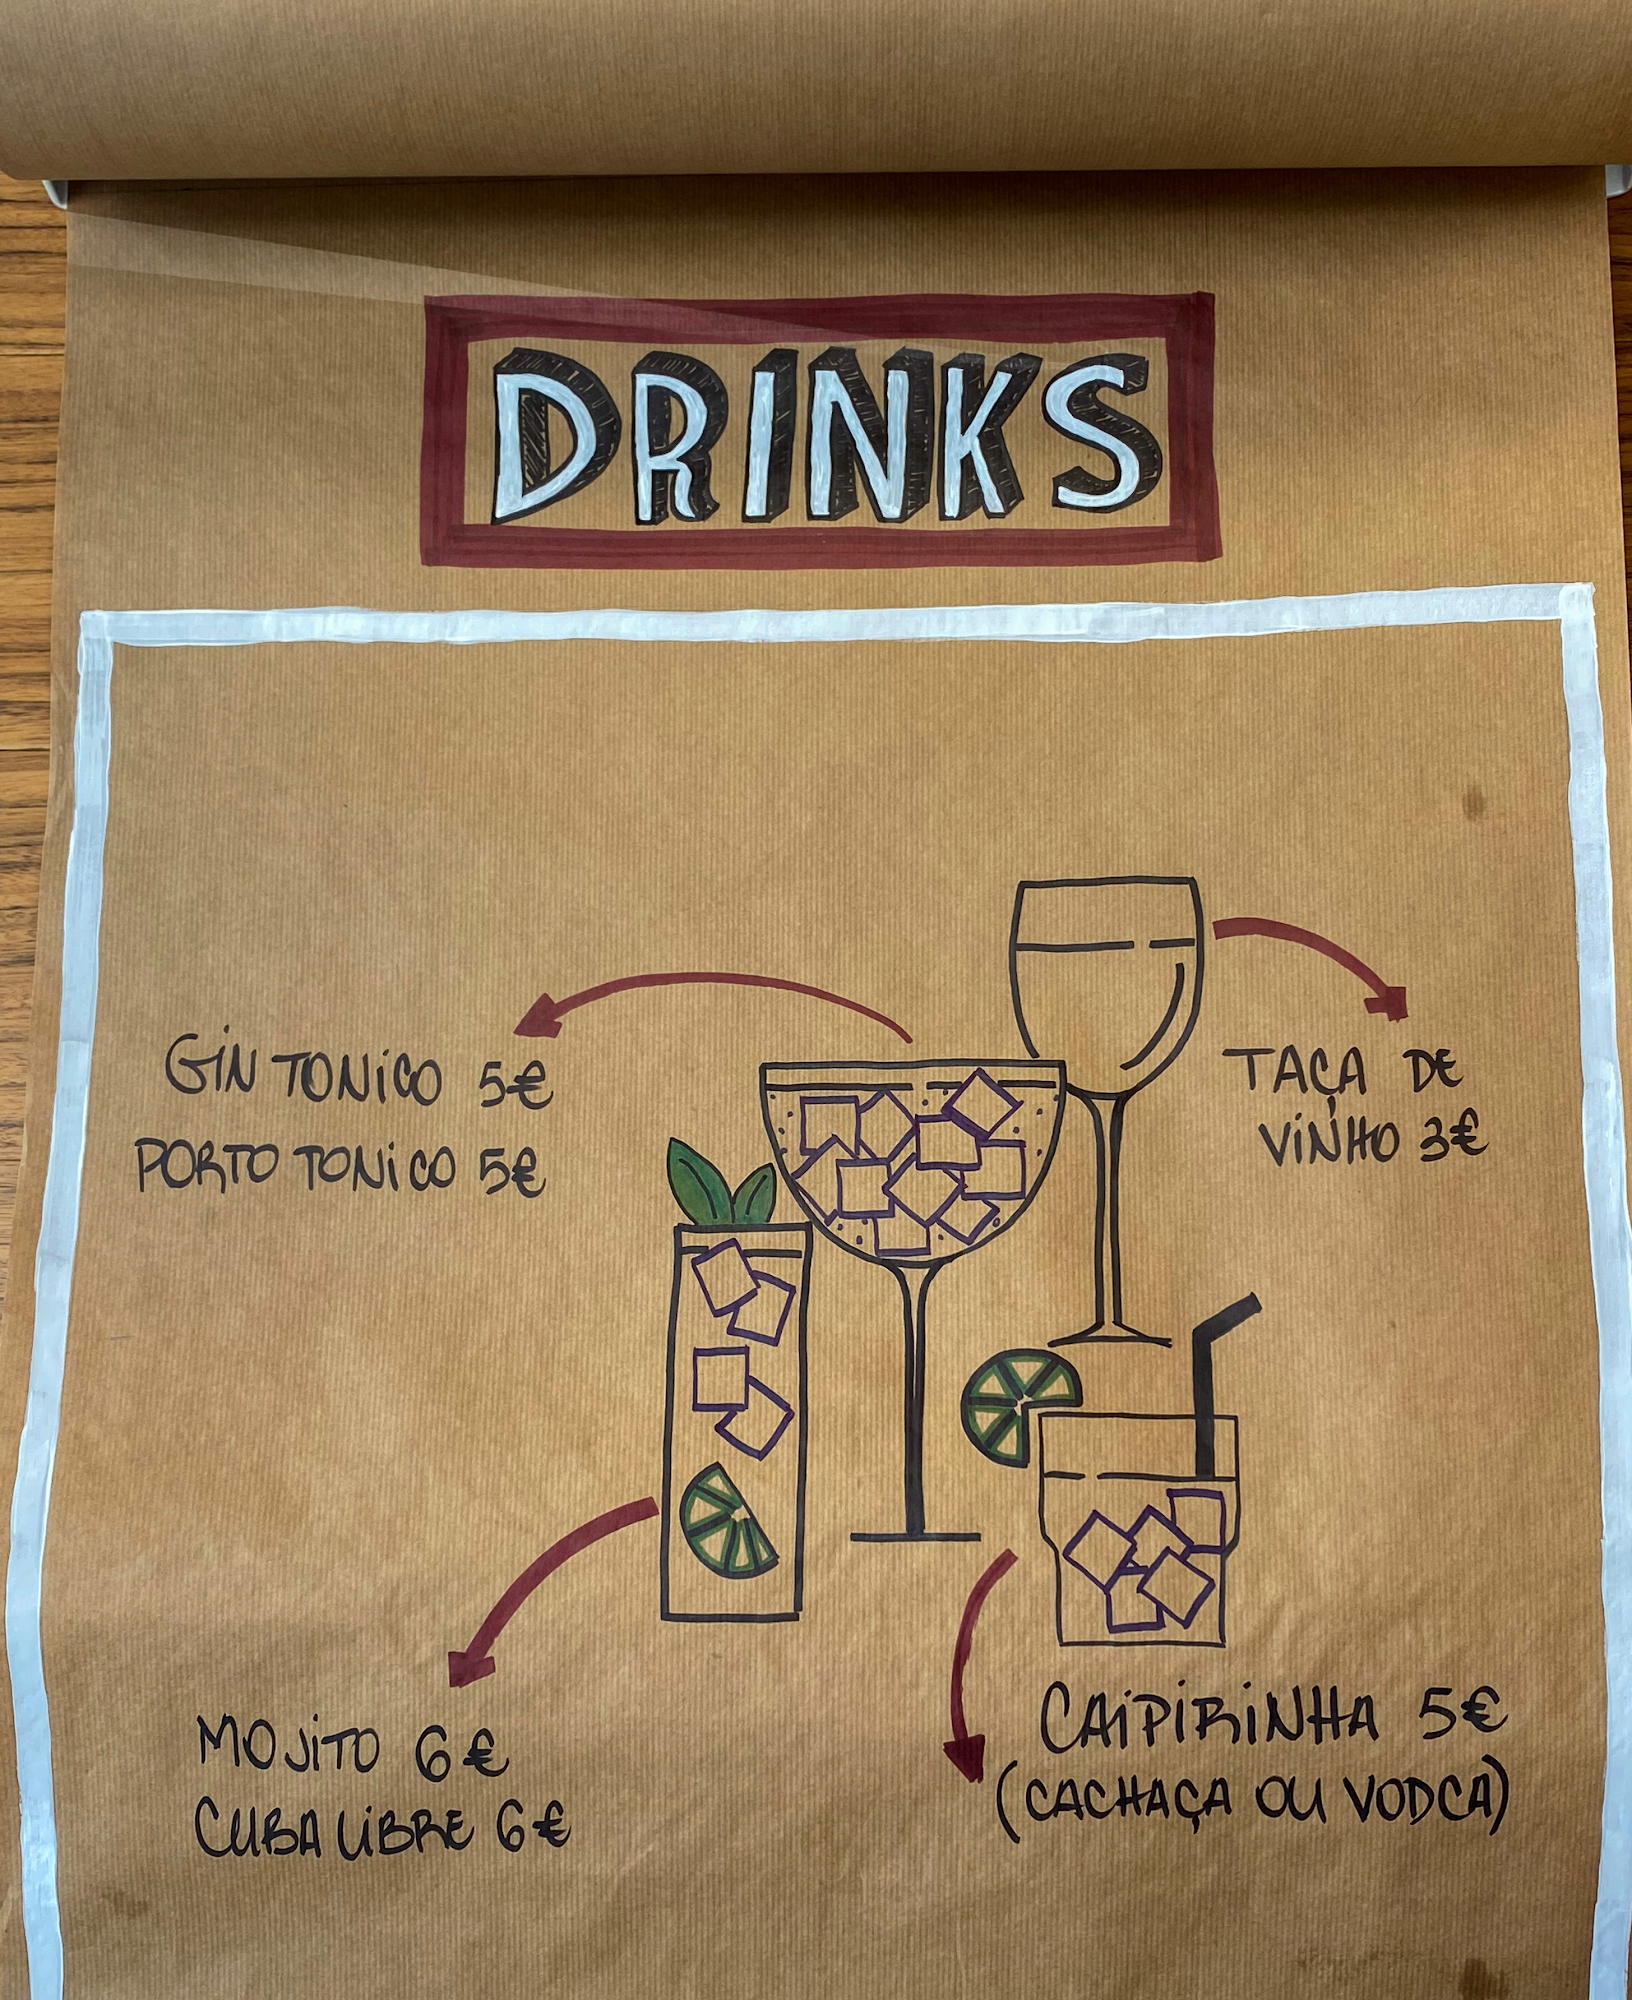 DRINKS
GIN TONICO 5€
PORTO TONICO 5€
TAÇA DE
VINHO 3€
MOJITO 6€
CUBA LIBRE 6€
CAIPIRINHA 5€
(CACHAÇA OU VODCA)